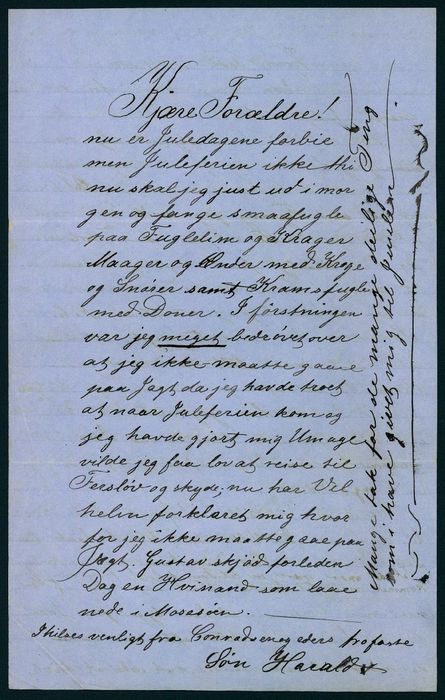 Kjære Forældre!
nu er Juledagene forbie
men Juleferien ikke thi
nu skal jeg just ud i mor
gen og fange smaafugle
paa Fuglelim og Krager
Maager og Ænder med Kroge
og Snarer samt Kramsfugle
med Doner. I förstningen
var jeg meget bedrövet over
at jeg ikke maatte gaae
paa Jagt da jeg havde troet
at naar Juleferien kom og
jeg havde gjort mig Umage
vilde jeg faa lov at reise til
Ferslöv og skyde, nu har Vil
helm forklaret mig hvor
for jeg ikke maatte gaae paa
Jagt. Gustav skjöd forleden
Dag en Hvinand som laae
nede i Mosesöen.
I hilses venligt fra Conradsen og eders
Sön Harald
Mange tak for de mange deilige Ting
som i have givet mig til Julen